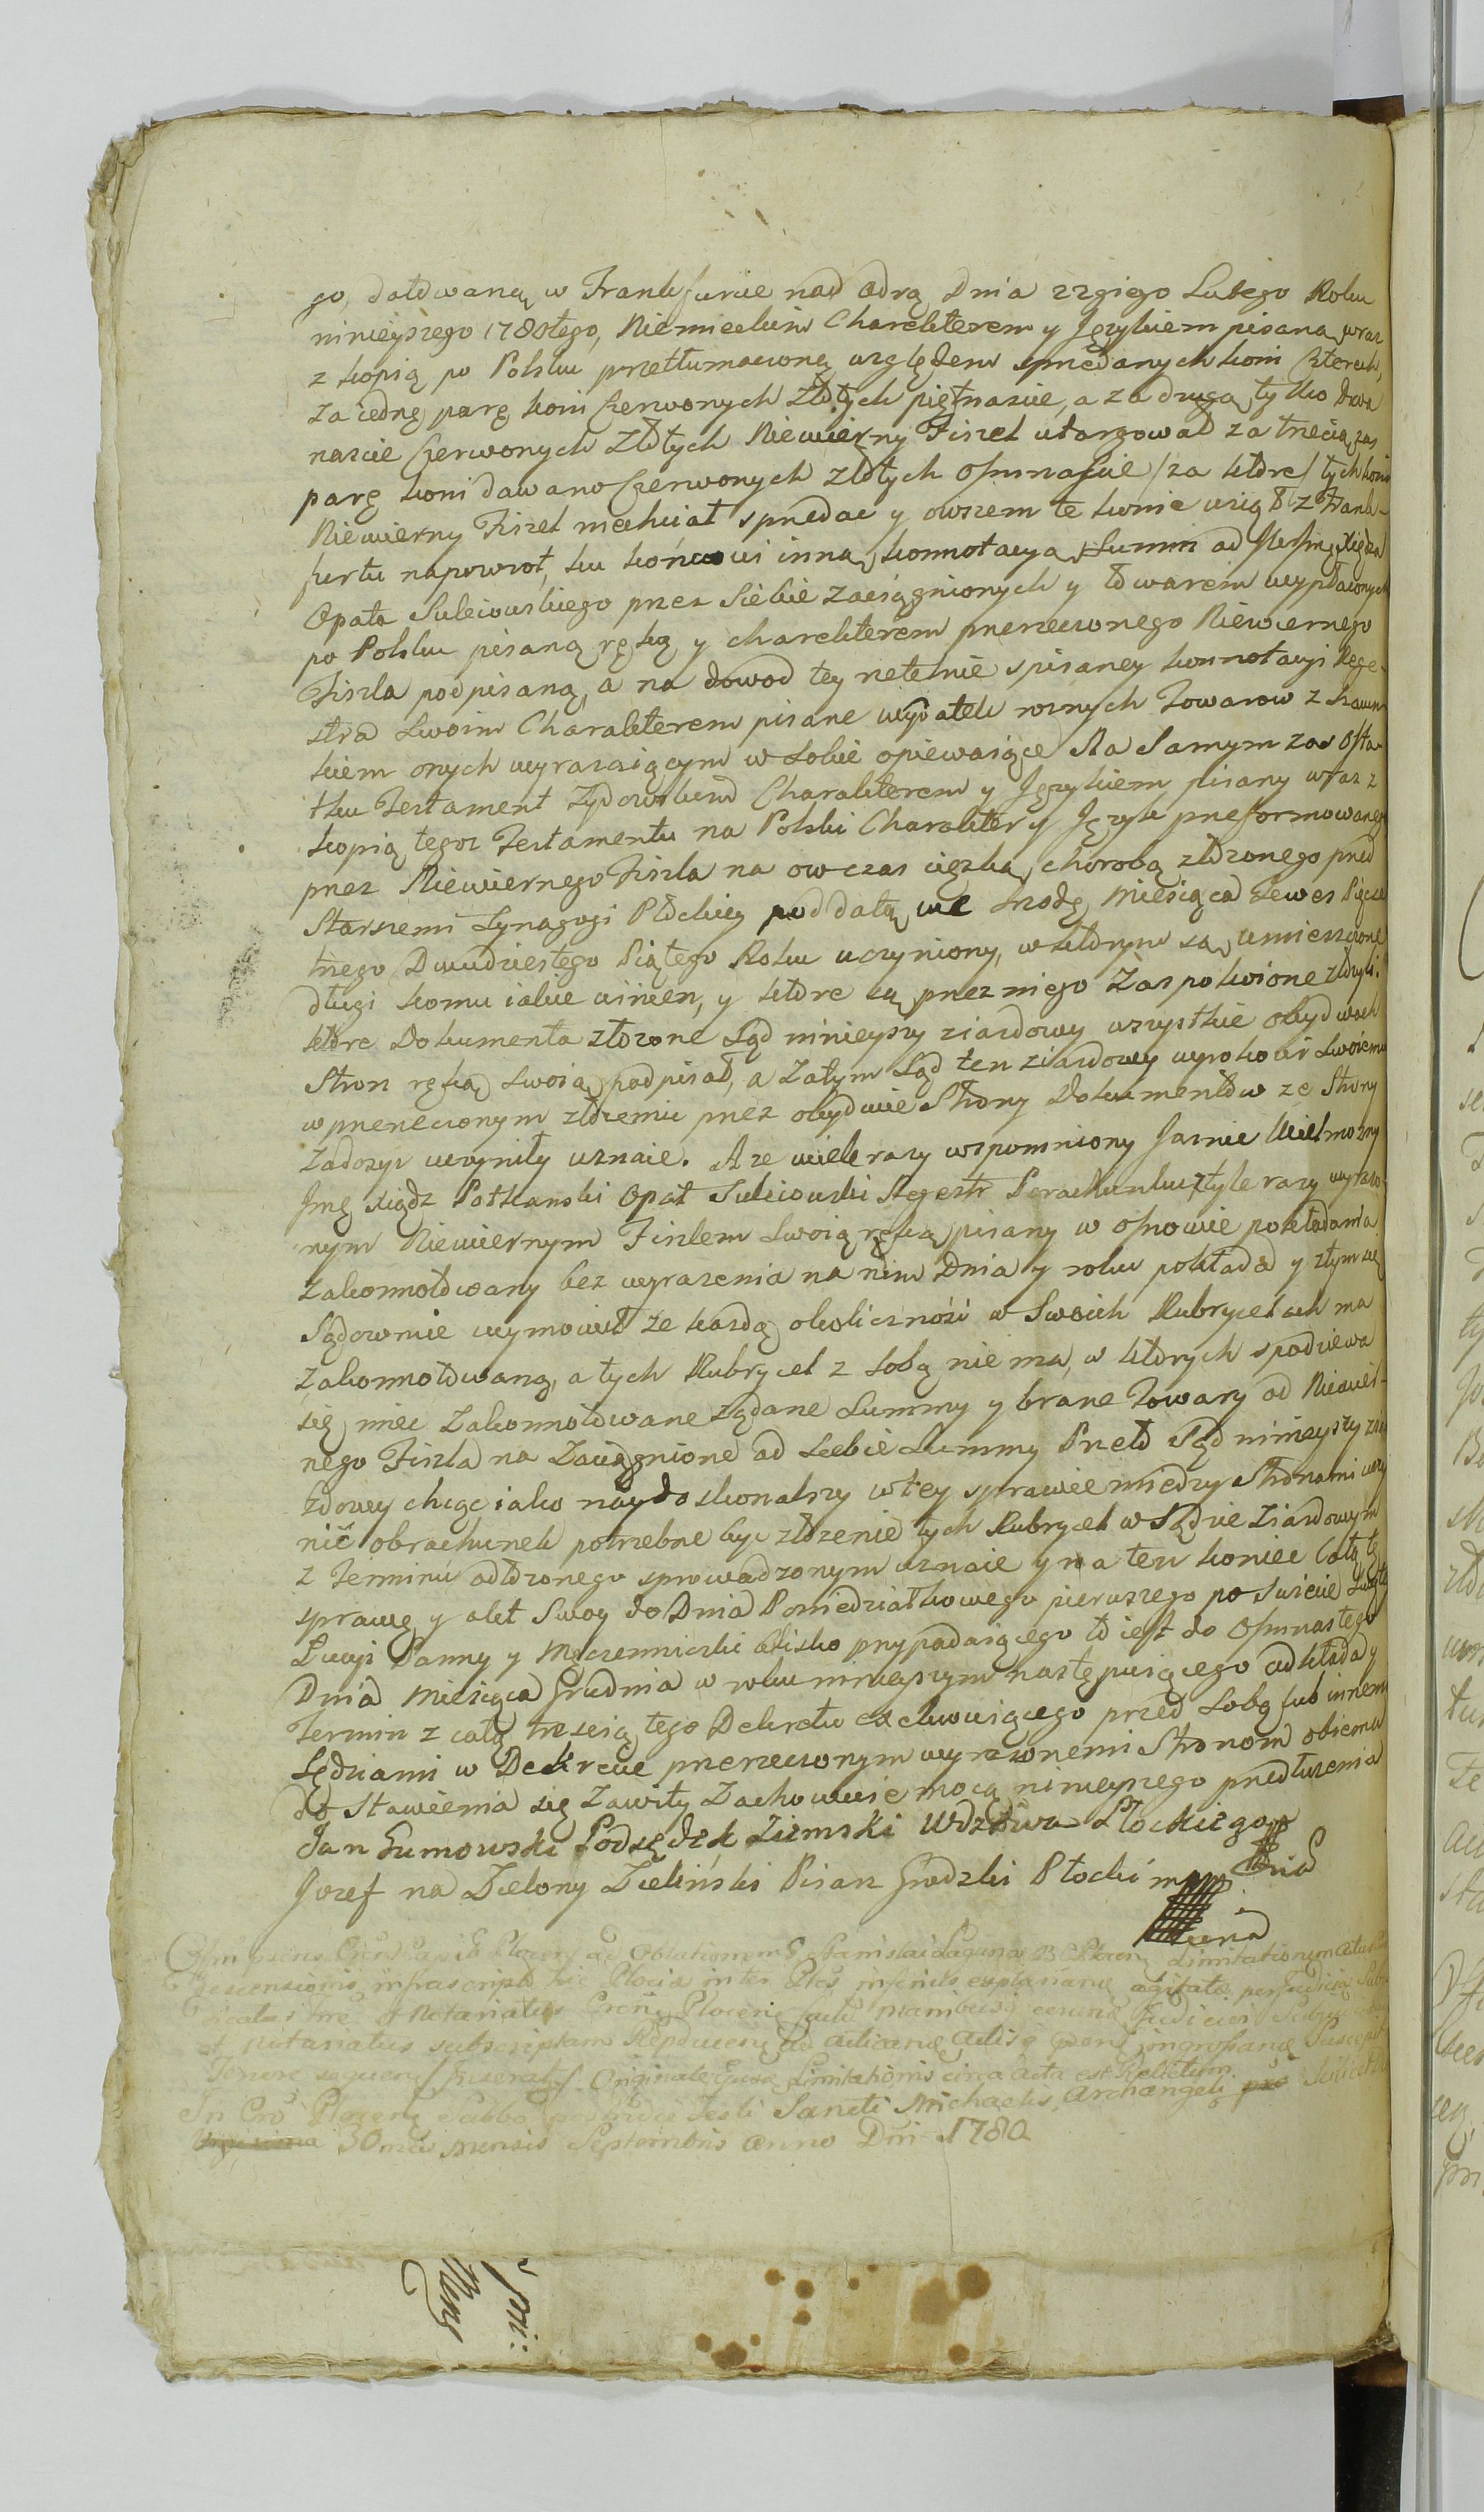 go, datowaną w Frankfurcie nad Odrą Dnia 22giego Lutego Roku
ninieyszego 1780tego, Niemieckim Charekterem y Językiem pisaną wraz
z kopią po Polsku przetłumaczoną względem sprzedanych koni czterech,
za iednę parę koni Czerwonych Złotych piętnaście, a za drugą tylko Dwa
naście Czerwonych Złotych Niewierny Fiszel utargował za trzecią zaś
parę koni dawano Czerwonych złotych osmnaście /za które/ tych koni
Niewierny Fiszel niechciał sprzedać y owszem te konie wziął z Frank-
furtu napowrot, ku końcowi inną konnotacyą Summ od Xiędza
Opata Suleiowskiego przez Siebie zaciągnionych y towarem wypłaconych
po Polsku pisaną ręką y charekterem przerzeczonego Niewiernego
Fiszla podpisaną, a na dowod tey rzetelnie spisaney konnotacyi Rege-
stra Swoim Charakterem pisane wydatek roznych Towarow z
kiem onych wyrazaiącym w sobie opiewaiące Na Samym zaś osta-
tku Testament Zydowskim Charakterem y Językiem pisany wraz z
kopią tegoz Testamentu na Polski Charakter y Język przeformowanego
przez Niewiernego Fiszla na owczas ciężką chorobą złożonego przed
Starszemi Synagogi Płockiey pod datą we Srodę Miesiąca Tewes Pięcse
tnego Dwudziestego Piątego Roku uczyniony, w którym są umieszczone
długi komu iakie winien, y które są przez niego Zaspokoione
które Dokumenta złożone Sąd ninieyszy ziazdowy wszystkie obydwoch
Stron ręką swoią podpisał, a Zatym Sąd ten ziazdowy wyrokowi Swoiemu
w przerzeczonym złożeniu przez obydwie Strony Dokumentów ze Strony
Zadosyć uczyniły uznaie. A ze wiele razy wspomniony Jaśnie Wielmożny
Jmć Xiądz Potkanski Opat Suleiowski Regestr Porachunku z tyle razy wyrazo-
nym Niewiernym Fiszlem Swoią ręką pisany w osnowie pokładania
Zakonnotowany bez wyrazenia na nim Dnia y roku pokłada y z tym się
Sądownie wymowił że kazdą okoliczność w Swoich Rubrycelach ma
Zakonnotowaną, a tych Rubrycel z sobą nie ma, w których spodziewa
się mieć Zakonnotowane żądane Summy y brane Towary od Niewier-
nego Fiszla na Zaciągnione od Siebie Summy Przeto Sąd ninieyszy zia
zdowy chcąc iako naydoskonalszy w tey sprawie miedzy Stronami uczy
nić obrachunek potrzebne być złożenie tych Rubrycel w Sądzie Ziazdowym
z Terminu odłożonego sprowadzonym uznaie y na ten koniec Całą tę
sprawę y akt Swoy do Dnia Poniedziałkowego pierwszego po Swięcie Swiętey
Łucyi Panny y Męczenniczki blisko przypadaiącego to iest do Osmnastego
Dnia Miesiąca Grudnia w roku ninieyszym następuiącego odkłada y
Termin z całą treścią tego Dekretu exekwuiącego przed Sobą lub innemi
Sędziami w Dekrecie przerzeczonym wyrazonemi Stronom obiema
do Stawienia się Zawity Zachowuie mocą ninieyszego przedłużenia
Jan Gumowski Podsędek Ziemski Wdztwa Płockiego
Jozef na Zielony Zieliński Pisarz Grodzki Płocki mpp
ad Oblationem Stanislai Limitationem
Descensionis infrascript hic Plociae inter Ptes inferius explanand agitata per Judicia Sub-
et Notariatus manibus
et Notariatus subscriptam ad Suscepit
Tenore sequen: Originale Ejusd Limitationis circa Acta est Relictum.
In Cro Plocen Sabbo postridie Festi Sancti Michaelis Archangeli
30ma mensis Septembris Anno Dni 1780